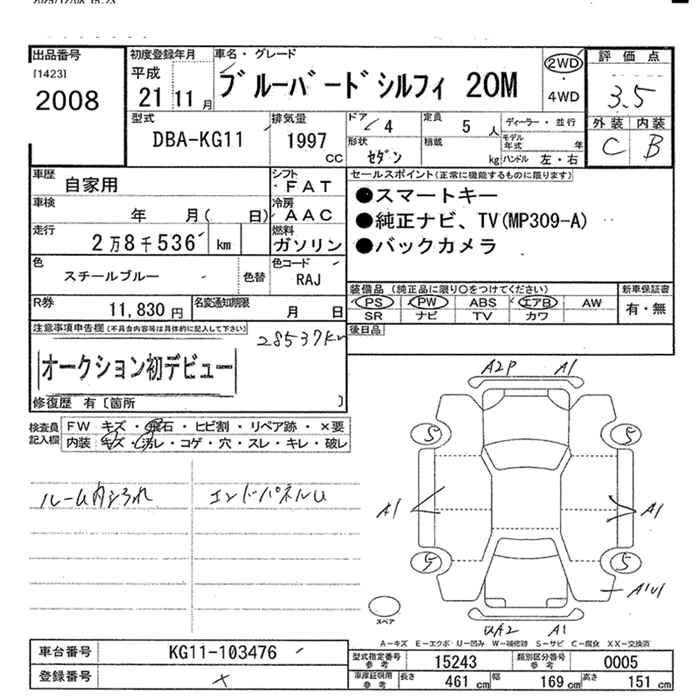 2025/12/08 15:23
出品番号
[1423]
2008
初度登録年月
平成
21 11 月
車名・グレード
ブルーバードシルフィ 20M
2WD
・
4WD
評価点
3.5
外装 内装
C B
型式
DBA-KG11
排気量
1997
CC
ドア 4
形状 セダン
定員 5 人
積載 kg
ディーラー・並行
モデル年式 年
ハンドル 左・右
車歴
自家用
シフト
FAT
車検
年 月( 日)
冷房
AAC
走行
2万8千536 km
燃料
ガソリン
色
スチールブルー
色替
色コード
RAJ
R券
11,830円
名変通知期限
月 日
セールスポイント(正常に機能するものに限ります)
●スマートキー
●純正ナビ、TV(MP309-A)
●バックカメラ
装備品 (純正品に限り○をつけてください)
PS PW ABS エアB AW
SR ナビ TV カワ
新車保証書
有・無
後日品
注意事項申告欄(不具合内容等は具体的に記入して下さい)
28537km
オークション初デビュー
修復歴 有〔箇所 〕
検査員
記入欄
FW キズ・飛石・ヒビ割・リペア跡・×要
内装 キズ・汚れ・コゲ・穴・スレ・キレ・破レ
ルーム内ヨゴれ
エンドパネルU
A2P A1
5 5
A1 A1
5 5
A1U1
UA2 A1
スペア
A-キズ E-エクボ U-凹み W-補修跡 S-サビ C-腐食 XX-交換済
車台番号
KG11-103476
登録番号
×
型式指定番号
参考
15243
類別区分番号
参考
0005
車庫証明用
参考
長さ 461 cm 幅 169 cm 高さ 151 cm